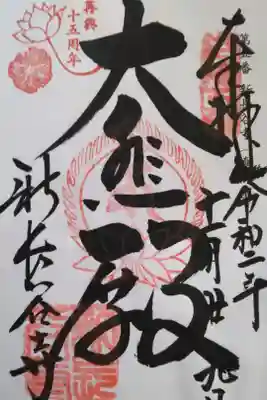 奉拝
令和二年
十一月廿九日
大悲殿
新長谷寺
再興
十五周年